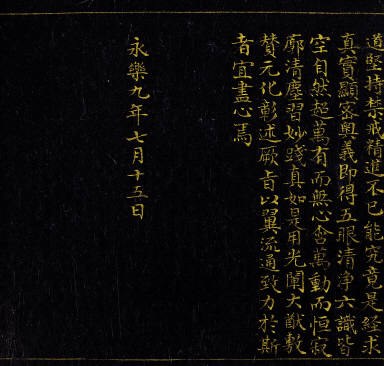 道堅持禁戒精進不已能究竟是經求
真實顯密奧義即得五眼清淨六識皆
空自然超萬有而無心含萬動而恒寂
廓清塵習妙踐真如是用光闡大猷敷
贊元化彰述厥旨以翼流通致力於斯
者宜盡心焉
永樂九年七月十五日